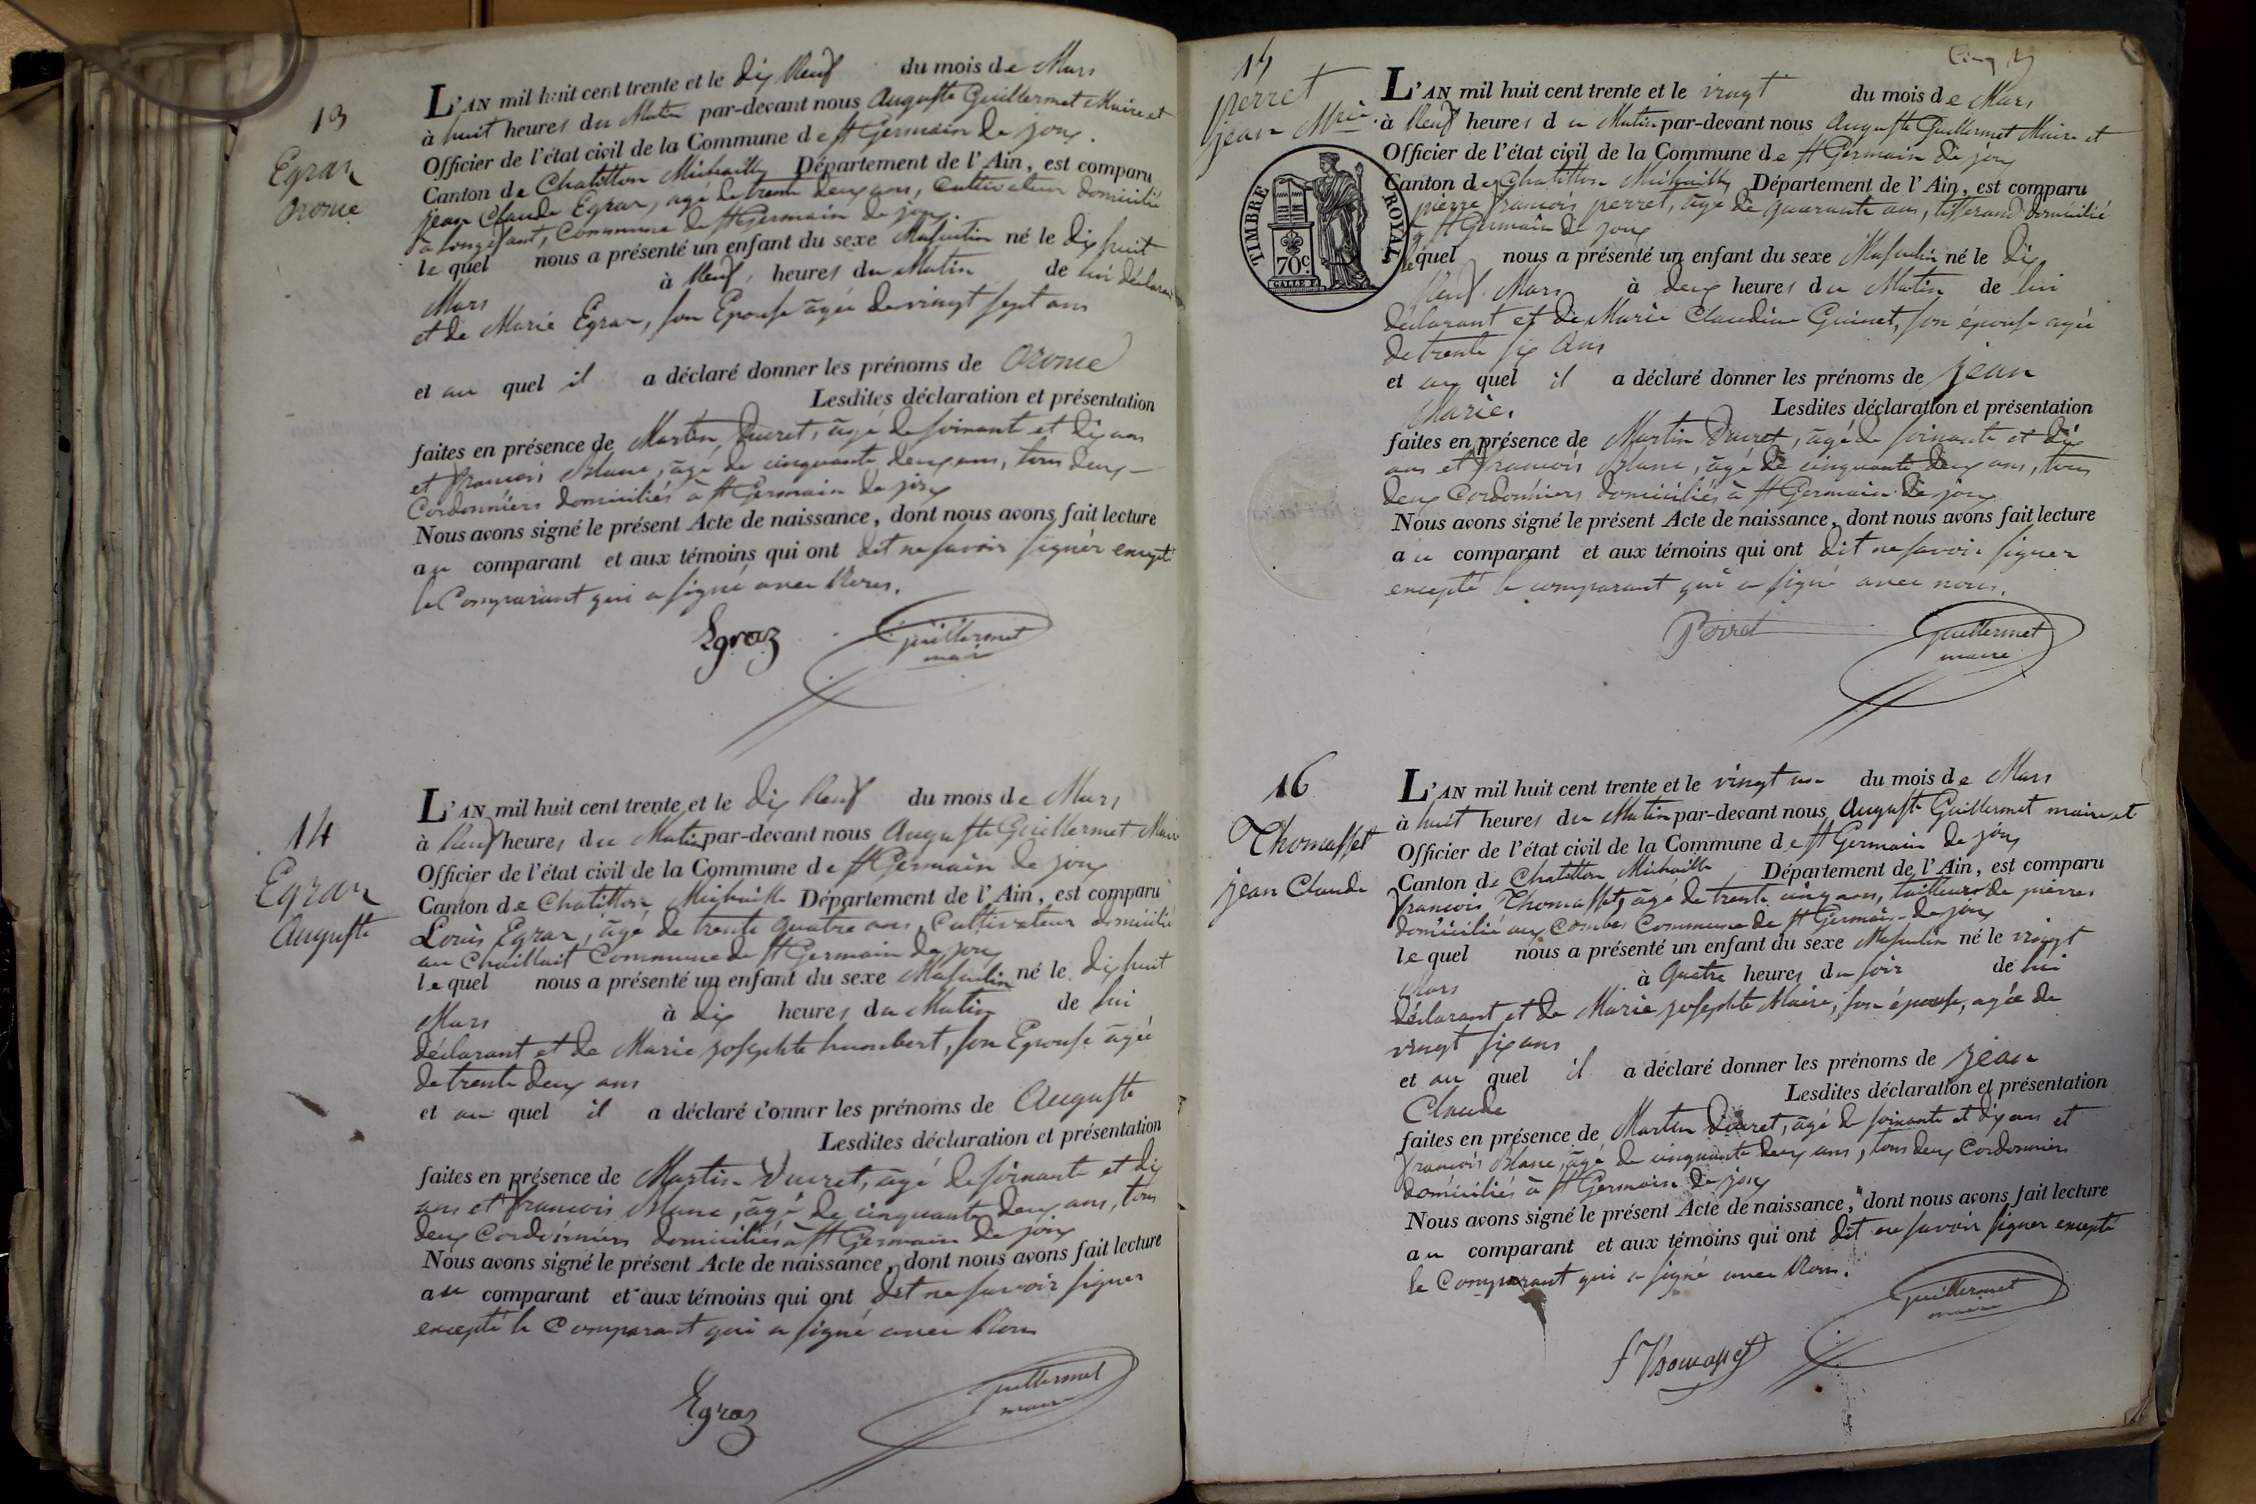 13
Egraz
Oronce
L'AN mil huit cent trente et le dix Neuf du mois de Mars
à huit heures du Matin par-devant nous Auguste Guillermet Maire et
Officier de l'état civil de la Commune de St Germain de joux.
Canton de Chatillon Michaille Département de l'Ain, est comparu
jean Claude Egraz, agé de trente deux ans, Cultivateur domicilié
à longefant, Commune de St Germain de joux.
le quel nous a présenté un enfant du sexe Masculin né le dix huit
Mars à Neuf heures du Matin de lui déclarant
et de Marie Egraz, son Epouse agée de vingt sept ans
et au quel il a déclaré donner les prénoms de Oronce
Lesdites déclaration et présentation
faites en présence de Martin Ducret, âgé de soixante et dix ans
et francois Blanc, âgé de cinquante deux ans, tous deux
Cordonniers domiciliés à St Germain de joux
Nous avons signé le présent Acte de naissance, dont nous avons fait lecture
au comparant et aux témoins qui ont dit ne savoir signer excepté
le Comparant qui a signé avec Nous.
Egraz
Guillermet
maire
14
Egraz
Auguste
L'AN mil huit cent trente et le dix Neuf du mois de Mars
à Neuf heures du Matin par-devant nous Auguste Guillermet Maire
Officier de l'état civil de la Commune de St Germain de joux
Canton de Chatillon Michaille Département de l'Ain, est comparu
Louis Egraz, âgé de trente quatre ans, Cultivateur domicilié
au Commune de St Germain de joux
le quel nous a présenté un enfant du sexe Masculin né le dix huit
Mars à dix heures du Matin de lui
déclarant et de Marie josephte humbert, son Epouse âgée
de trente deux ans
et au quel il a déclaré donner les prénoms de Auguste
Lesdites déclaration et présentation
faites en présence de Martin Ducret, agé de soixante et dix
ans et francois Blanc, âgé de cinquante deux ans, tous
deux Cordonniers domiciliés à St Germain de joux
Nous avons signé le présent Acte de naissance, dont nous avons fait lecture
au comparant et aux témoins qui ont dit ne savoir signer
excepté le Comparant qui a signé avec Nous
Egraz
Guillermet
maire
15
perret
jean Mrie.
TIMBRE ROYAL
70c
L'AN mil huit cent trente et le vingt du mois de Mars
à Neuf heures du Matin par-devant nous Auguste Guillermet Maire et
Officier de l'état civil de la Commune de St Germain de joux
Canton de Chatillon Michaille Département de l'Ain, est comparu
pierre francois perret, âgé de quarante ans, tisserand domicilié
à St Germain de joux
le quel nous a présenté un enfant du sexe Masculin né le dix
Neuf Mars à deux heures du Matin de lui
déclarant et de Marie Claudine Guinet, son épouse agée
de trente six ans
et au quel il a déclaré donner les prénoms de jean
Marie.
Lesdites déclaration et présentation
faites en présence de Martin Ducret, âgé de soixante et dix
ans et francois Blanc, âgé de cinquante deux ans, tous
deux Cordonniers domiciliés à St Germain de joux
Nous avons signé le présent Acte de naissance, dont nous avons fait lecture
au comparant et aux témoins qui ont dit ne savoir signer
excepté le comparant qui a signé avec nous.
Perret
Guillermet
maire
16
Thomasset
jean Claude
L'AN mil huit cent trente et le vingt un du mois de Mars
à huit heures du Matin par-devant nous Auguste Guillermet maire et
Officier de l'état civil de la Commune de St Germain de joux
Canton de Chatillon Michaille Département de l'Ain, est comparu
francois Thomasset, âgé de trente cinq ans, tailleur de pierres
domicilié aux Combes Commune de St Germain de joux
le quel nous a présenté un enfant du sexe Masculin né le vingt
Mars à Quatre heures du soir de lui
déclarant et de Marie josephte Maire, son épouse, agée de
vingt six ans
et au quel il a déclaré donner les prénoms de jean
Claude
Lesdites déclaration et présentation
faites en présence de Martin Ducret, âgé de soixante et dix ans et
francois Blanc, âgé de cinquante deux ans, tous deux Cordonniers
domiciliés à St Germain de joux
Nous avons signé le présent Acte de naissance, dont nous avons fait lecture
au comparant et aux témoins qui ont dit ne savoir signer excepté
le Comparant qui a signé avec Nous.
Guillermet
maire
f Thomasset